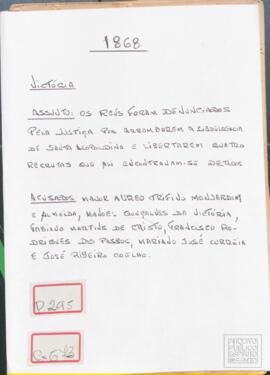 1868
VICTÓRIA
ASSUNTO: OS RÉUS FORAM DENUNCIADOS
PELA JUSTIÇA POR ARROMBAREM A SUBDELEGACIA
DE SANTA LEOPOLDINA E LIBERTAREM QUATRO
RECRUTAS QUE ALI ENCONTRAVAM-SE DETIDOS
ACUSADOS MAJOR AUREO TRIFINO MONJARDIM
E ALMEIDA, MANOEL GONÇALVES DA VICTÓRIA,
FABIANO MARTINS DE CRISTO, FRANCISCO RO-
DRIGUES DOS PASSOS, MARIANO JOSÉ CORREIA
E JOSÉ RIBEIRO COELHO.
P.295
ARQUIVO
PÚBLICO
ESTADO